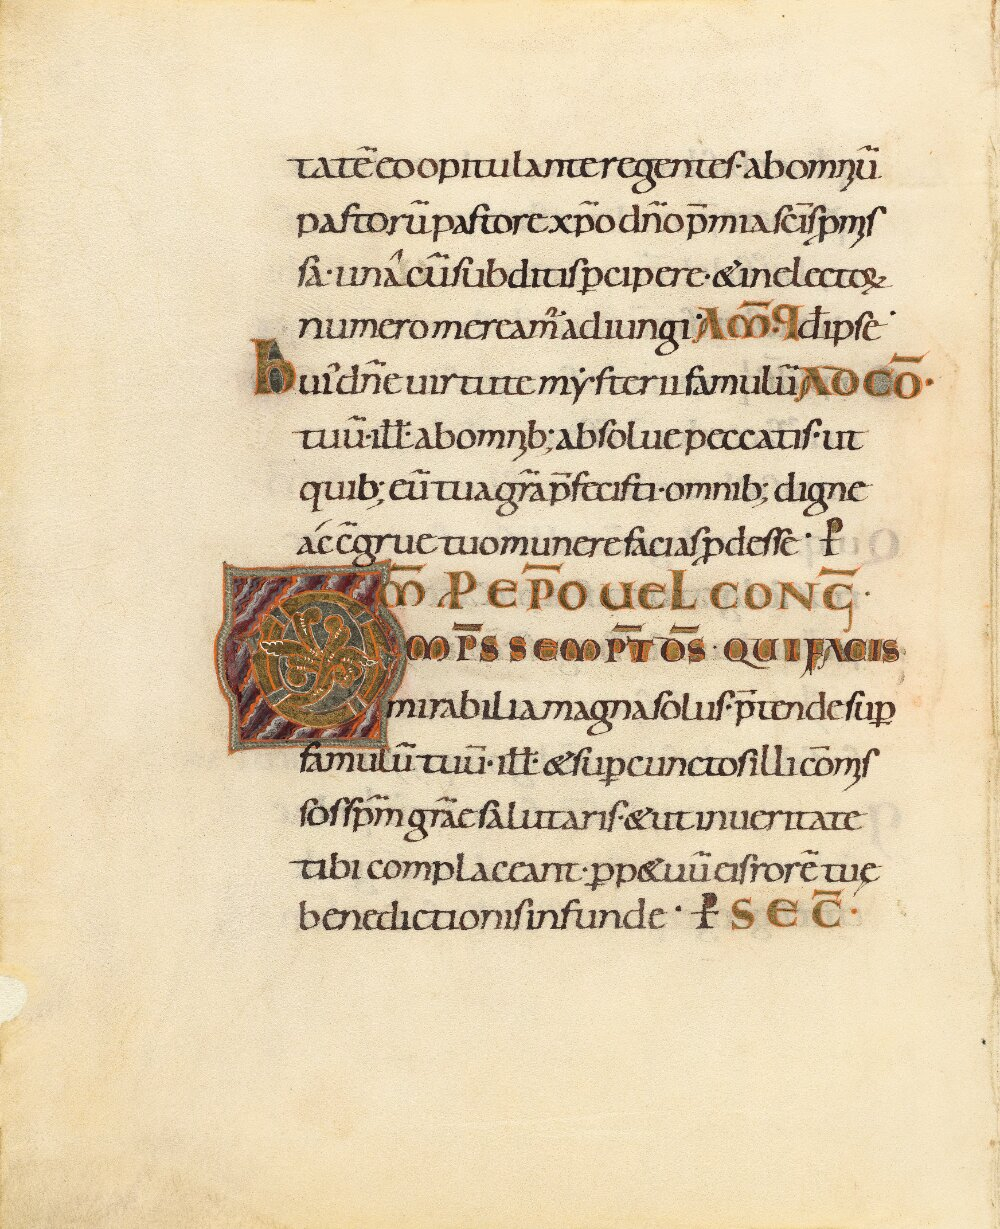 tatē eo opitulante regentes· ab omniū
pastorū pastore xp̄o dn̄o p̄mia scīs p̄mis
sa· unā cū subditis p̄cipere· & in electoꝝ
numero meream̄ adiungi· AM̄· P d̄ ipse·
huī dn̄e uirtute mẏsterii famulū AD CŌ·
tuū· ill̄ ab omnib; absolue peccatis· ut
quib; eū tua grā p̄fecisti· omnib; digne
ac cc̄grue tuo munere facias ꝓdesse· P̄
OM̄ PEP̄O UEL CONG̅·
OMP̄S SEMPT̄ D̄S· QUI FACIS
mirabilia magna solus· p̄tende sup̄
famulū tuū· ill̄ & sup̄ cunctos illi cōmis
sos sp̄m grāe salutaris· & ut in ueritate
tibi complaceant· ꝑp&uū eis rorē tuę
benedictionis infunde· P̄ SEC̄·